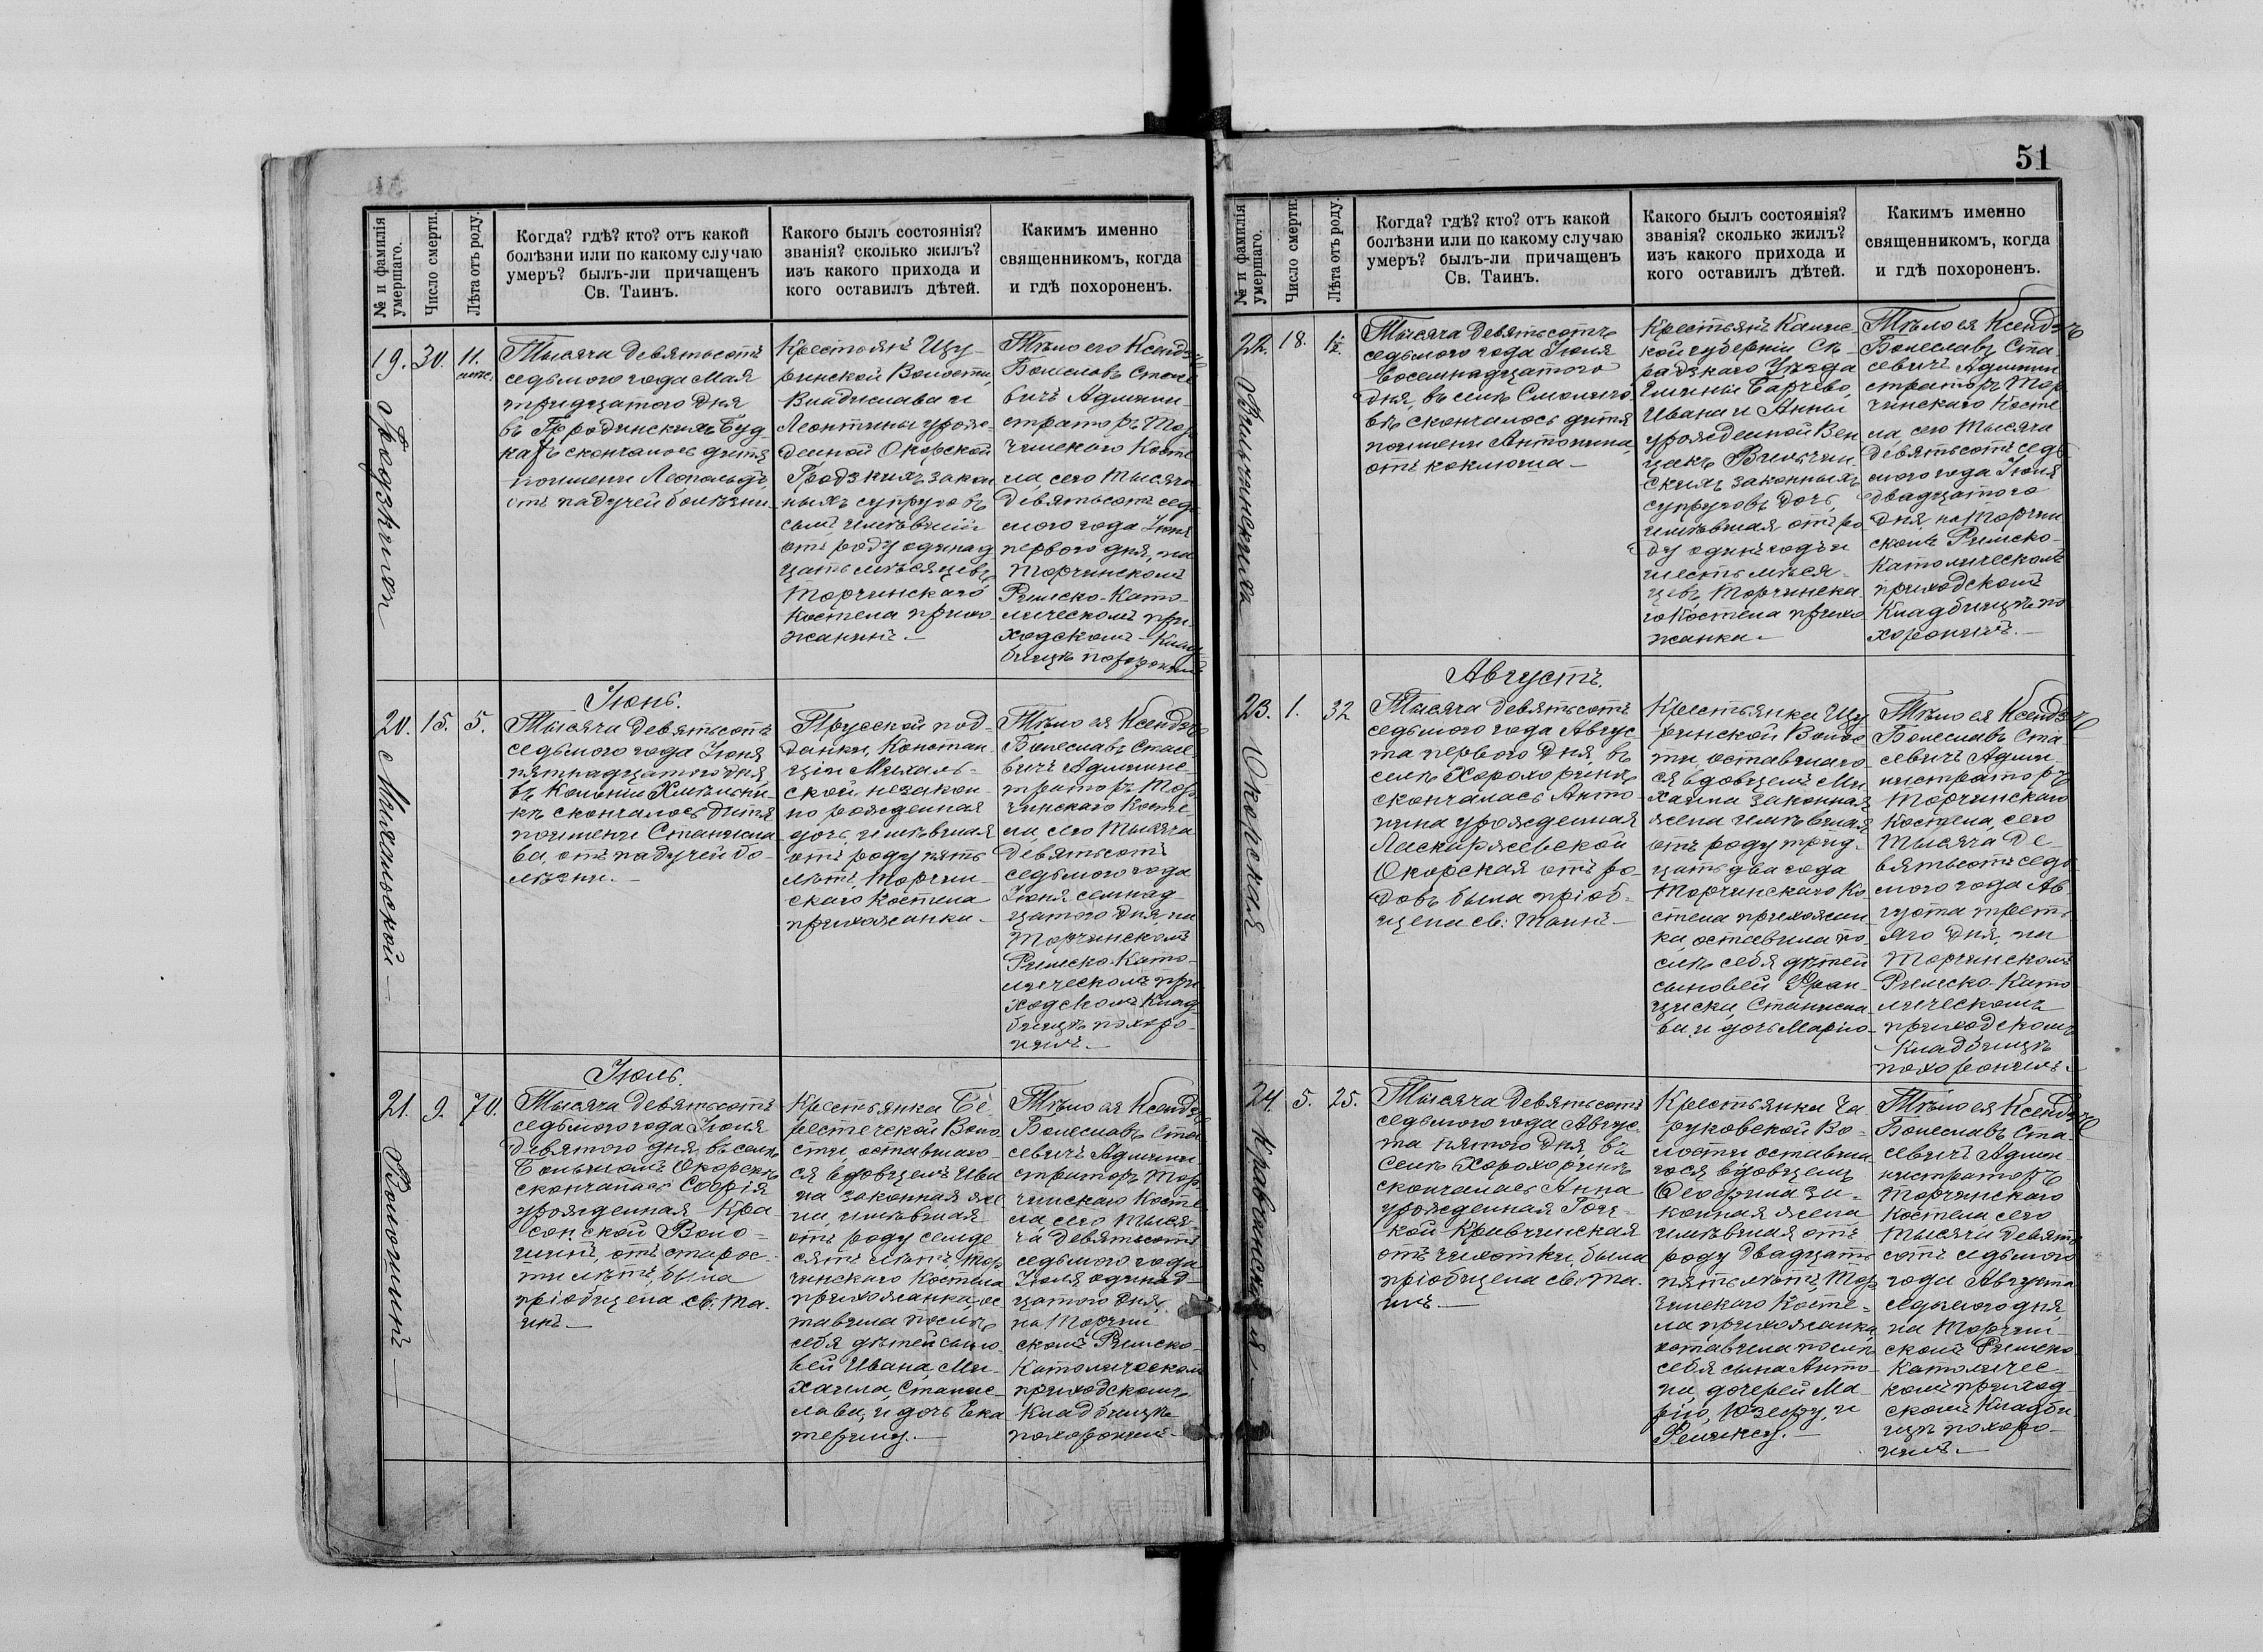 51
№ и фамилія умершаго.
Число смерти.
Лѣта отъ роду.
Когда? гдѣ? кто? отъ какой
болѣзни или по какому случаю
умеръ? былъ-ли причащенъ
Св. Таинъ.
Какого былъ состоянія?
званія? сколько жилъ?
изъ какого прихода и
кого оставилъ дѣтей.
Каким именно
священникомъ, когда
и гдѣ похороненъ.
19.
30.
11.
Тысяча девятьсотъ
седьмого года Мая
тридцатого дня
въ Городинскихъ Буд-
кахъ скончалось дитя
поимени Леопольдъ,
отъ падучей болѣзни.
Крестьянъ Щу-
ринской Волости,
Владислава и
Леонтины урож-
денной Окорской
Гродзкихъ закон
ныхъ супруговъ
сынъ, имѣвшій
отъ роду одинад
цать мѣсяцевъ,
Торчинскаго
Костела прихо-
жанинъ.—
Тѣло его Ксендзъ
Болеславъ Стасе
вичъ Админи-
страторъ Тор
чинскаго Косте
ла, сего тысяча
девятьсотъ седь
мого года Іюня
первого дня, на
Торчинскомъ
Римско-Като-
лическомъ при-
ходскомъ Клад
бищѣ похоронилъ
Іюнь.
20.
15.
5.
Михальской—
Тысяча девятьсотъ
седьмого года Іюня
пятнадцатого дня,
въ Колоніи Хмѣльни-
кѣ скончалось дитя
поимени Станисла
ва, отъ падучей бо-
лѣзни.—
Прусской под-
данки, Констан
ціи Михаль-
ской незакон-
но рожденная
дочь, имѣвшая
отъ роду пять
лѣтъ, Торчин-
скаго Костела
прихожанка.
Тѣло ея Ксендзъ
Болеславъ Стасе
вичъ Админис-
траторъ Тор
чинскаго Косте-
ла, сего тысяча
девятьсотъ
седьмого года
Іюня семнад-
цатого дня, на
Торчинскомъ
Римско-Като-
лическомъ при
ходскомъ Клад
бищѣ похоро-
нилъ.—
Іюль.
21.
9.
70.
Волошинъ—
Тысяча девятьсотъ
седьмого года Іюля
девятого дня, въ селѣ
Большомъ Окорскѣ
скончалась Софія
урожденная Кра-
сонской Воло-
шинъ, отъ старос-
ти лѣтъ, была
пріобщена св: та-
инъ—
Крестьянка Бе-
рестечской Воло
сти, оставшаго-
ся вдовцемъ Ива
на законная же
на, имѣвшая
отъ роду семьде
сятъ лѣтъ, Тор
чинскаго Костела
прихожанка, ос
тавила послѣ
себя дѣтей сыно
вей Ивана, Ми-
хаила, Станис-
лава, и дочь Ека
терину.—
Тѣло ея Ксендзъ
Болеславъ Ста
севичъ Админи
страторъ Тор
чинскаго Косте
ла, сего тыся-
ча девятьсотъ
седьмого года
Іюля одинад-
цатого дня,
на Торчин
скомъ Римско-
Католическомъ
приходскомъ
Кладбищѣ
похоронилъ—
22.
18.
Тысяча девятьсотъ
седьмого года Іюля
восемнадцатого
дня, въ селѣ Смоляго
вѣ скончалось дитя
поимени Антонина,
отъ коклюша—
Крестьянъ Калис-
кой губерніи Сѣ-
радзкаго Уѣзда
Гмины Барчево,
Ивана и Анны
урожденной Вен
цекъ
скихъ законныхъ
супруговъ дочь,
имѣвшая отъ ро
ду одинъ годъ и
шесть мѣся-
цевъ, Торчинска-
го Костела прихо
жанка.—
Тѣло ея Ксендзъ
Болеславъ Ста
севичъ Админи
страторъ Тор
чинскаго Косте
ла, сего тысяча
девятьсотъ седь
мого года Іюля
двадцатого
дня, на Торчин
скомъ Римско-
Католическомъ
приходскомъ
Кладбищѣ по
хоронилъ.—
Августъ.
23.
1.
32
Окорская
Тысяча девятьсотъ
седьмого года Авгус-
та первого дня, въ
селѣ Хорохоринѣ
скончалась Анто-
нина урожденная
Окорская отъ ро-
довъ была пріоб-
щена св: таинъ—
Крестьянка Щу
ринской Воло
ти, оставшаго-
ся вдовцемъ Ми-
хаила законная
жена имѣвшая
отъ роду трид-
цать два года
Торчинскаго Ко
стела прихожан
ка, оставила по-
слѣ себя дѣтей
сыновей Фран-
циска, Станисла
ва, и дочь Марію—
Тѣло ея Ксендзъ
Болеславъ Ста-
севичъ Адми-
нистраторъ
Торчинскаго
Костела, сего
тысяча де-
вятьсотъ седь
мого года Ав
густа треть-
яго дня, на
Торчинскомъ
Римско-Като
лическомъ
приходскомъ
Кладбищѣ
похоронилъ.
24.
5.
25.
Кравчинская—
Тысяча девятьсотъ
седьмого года Авгус-
та пятого дня, въ
селѣ Хорохоринѣ
скончалась Анна
урожденная
кой Кравчинская
отъ чахотки, была
пріобщена св: та-
инъ—
Крестьянка Ча-
руковской Во-
лости оставша
гося вдовцемъ
Теофила за-
конная жена
имѣвшая отъ
роду двадцать
пять лѣтъ, Тор
чинскаго Косте-
ла прихожанка,
оставила послѣ
себя сына Анто-
на, дочерей Ма-
рію, Юзефу, и
Феликсу.—
Тѣло ея Ксендзъ
Болеславъ Ста-
севичъ Адми-
нистраторъ
Торчинскаго
Костела сего
тысяча девять
сотъ седьмого
года Августа
седьмого дня,
на Торчин-
скомъ Римско
Католичес-
комъ приход-
скомъ Кладби
щѣ похоро-
нилъ.—